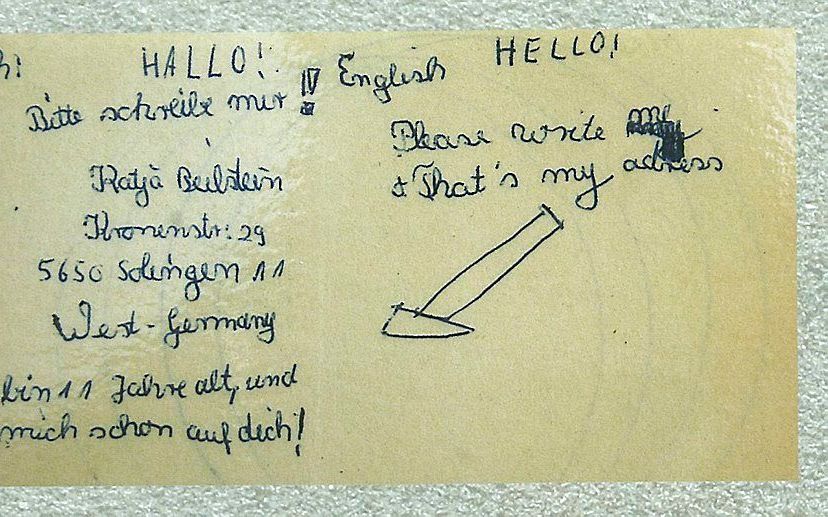 h! HALLO!
Bitte schreibe mir !!
Katja Beilstein
Kronenstr. 29
5650 Solingen 11
West-Germany
bin 11 Jahre alt, und
mich schon auf dich!
English HELLO!
Please write
& That's my adress